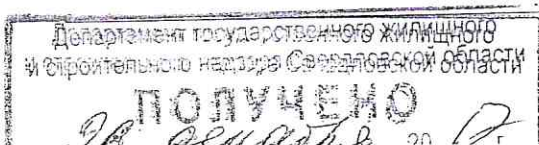 Департамент государственного жилищного
и строительного надзора Свердловской области
ПОЛУЧЕНО
20 г.